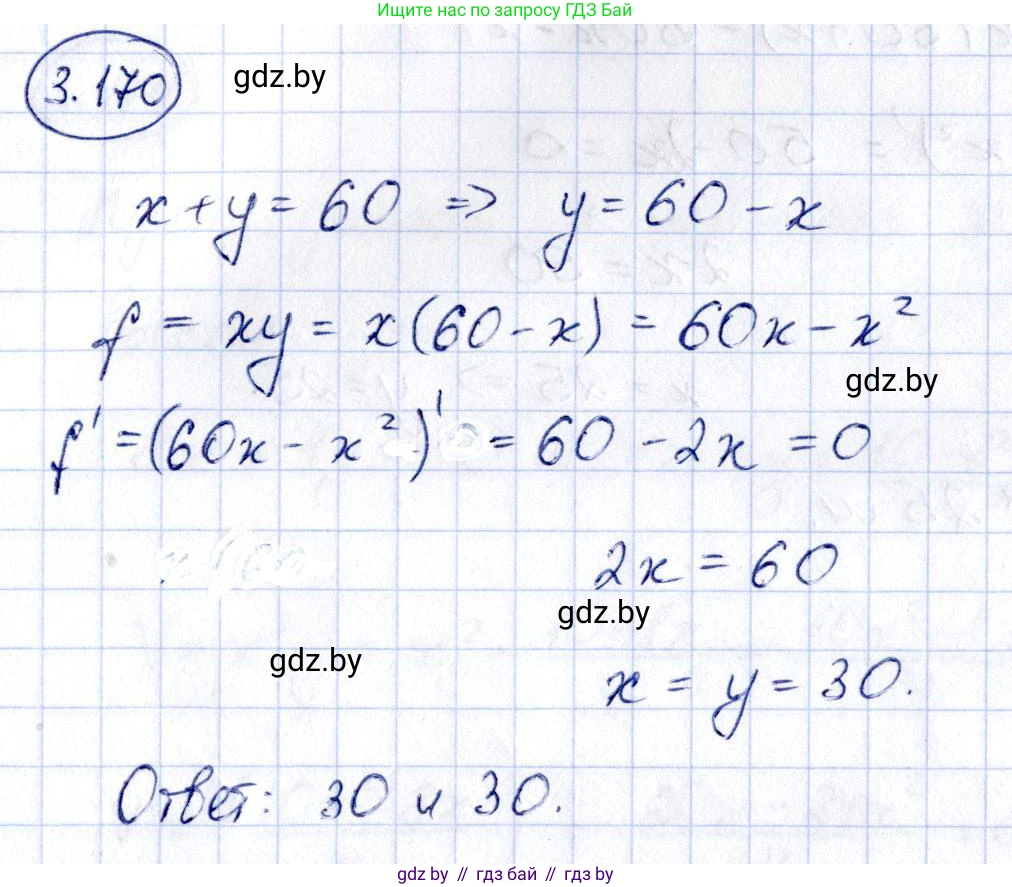 Ищите нас по запросу ГДЗ Бай
3.170
gdz.by
x + y = 60 => y = 60 - x
f = xy = x(60 - x) = 60x - x²
gdz.by
f' = (60x - x²)' = 60 - 2x = 0
2x = 60
gdz.by
gdz.by
x = y = 30.
Ответ: 30 и 30.
gdz.by // гдз бай // gdz by